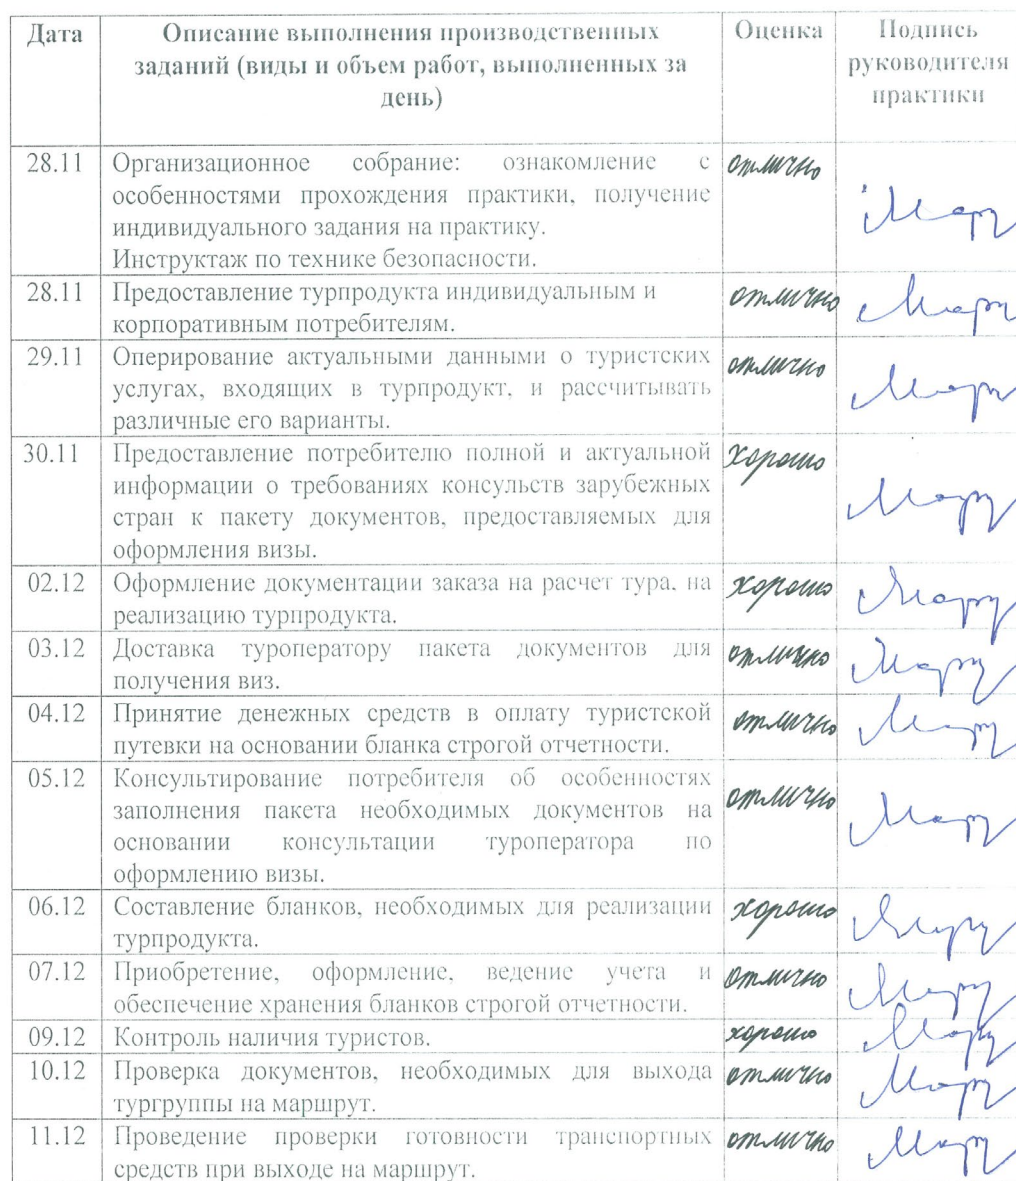 Дата Описание выполнения производственных Оценка Подпись
заданий (виды и объем работ, выполненных за руководителя
день) практики
28.11 Организационное собрание: ознакомление с отлично
особенностями прохождения практики, получение
индивидуального задания на практику.
Инструктаж по технике безопасности.
28.11 Предоставление турпродукта индивидуальным и отлично
корпоративным потребителям.
29.11 Оперирование актуальными данными о туристских отлично
услугах, входящих в турпродукт, и рассчитывать
различные его варианты.
30.11 Предоставление потребителю полной и актуальной хорошо
информации о требованиях консульств зарубежных
стран к пакету документов, предоставляемых для
оформления визы.
02.12 Оформление документации заказа на расчет тура, на хорошо
реализацию турпродукта.
03.12 Доставка туроператору пакета документов для отлично
получения виз.
04.12 Принятие денежных средств в оплату туристской отлично
путевки на основании бланка строгой отчетности.
05.12 Консультирование потребителя об особенностях отлично
заполнения пакета необходимых документов на
основании консультации туроператора по
оформлению визы.
06.12 Составление бланков, необходимых для реализации хорошо
турпродукта.
07.12 Приобретение, оформление, ведение учета и отлично
обеспечение хранения бланков строгой отчетности.
09.12 Контроль наличия туристов. хорошо
10.12 Проверка документов, необходимых для выхода отлично
тургруппы на маршрут.
11.12 Проведение проверки готовности транспортных отлично
средств при выходе на маршрут.